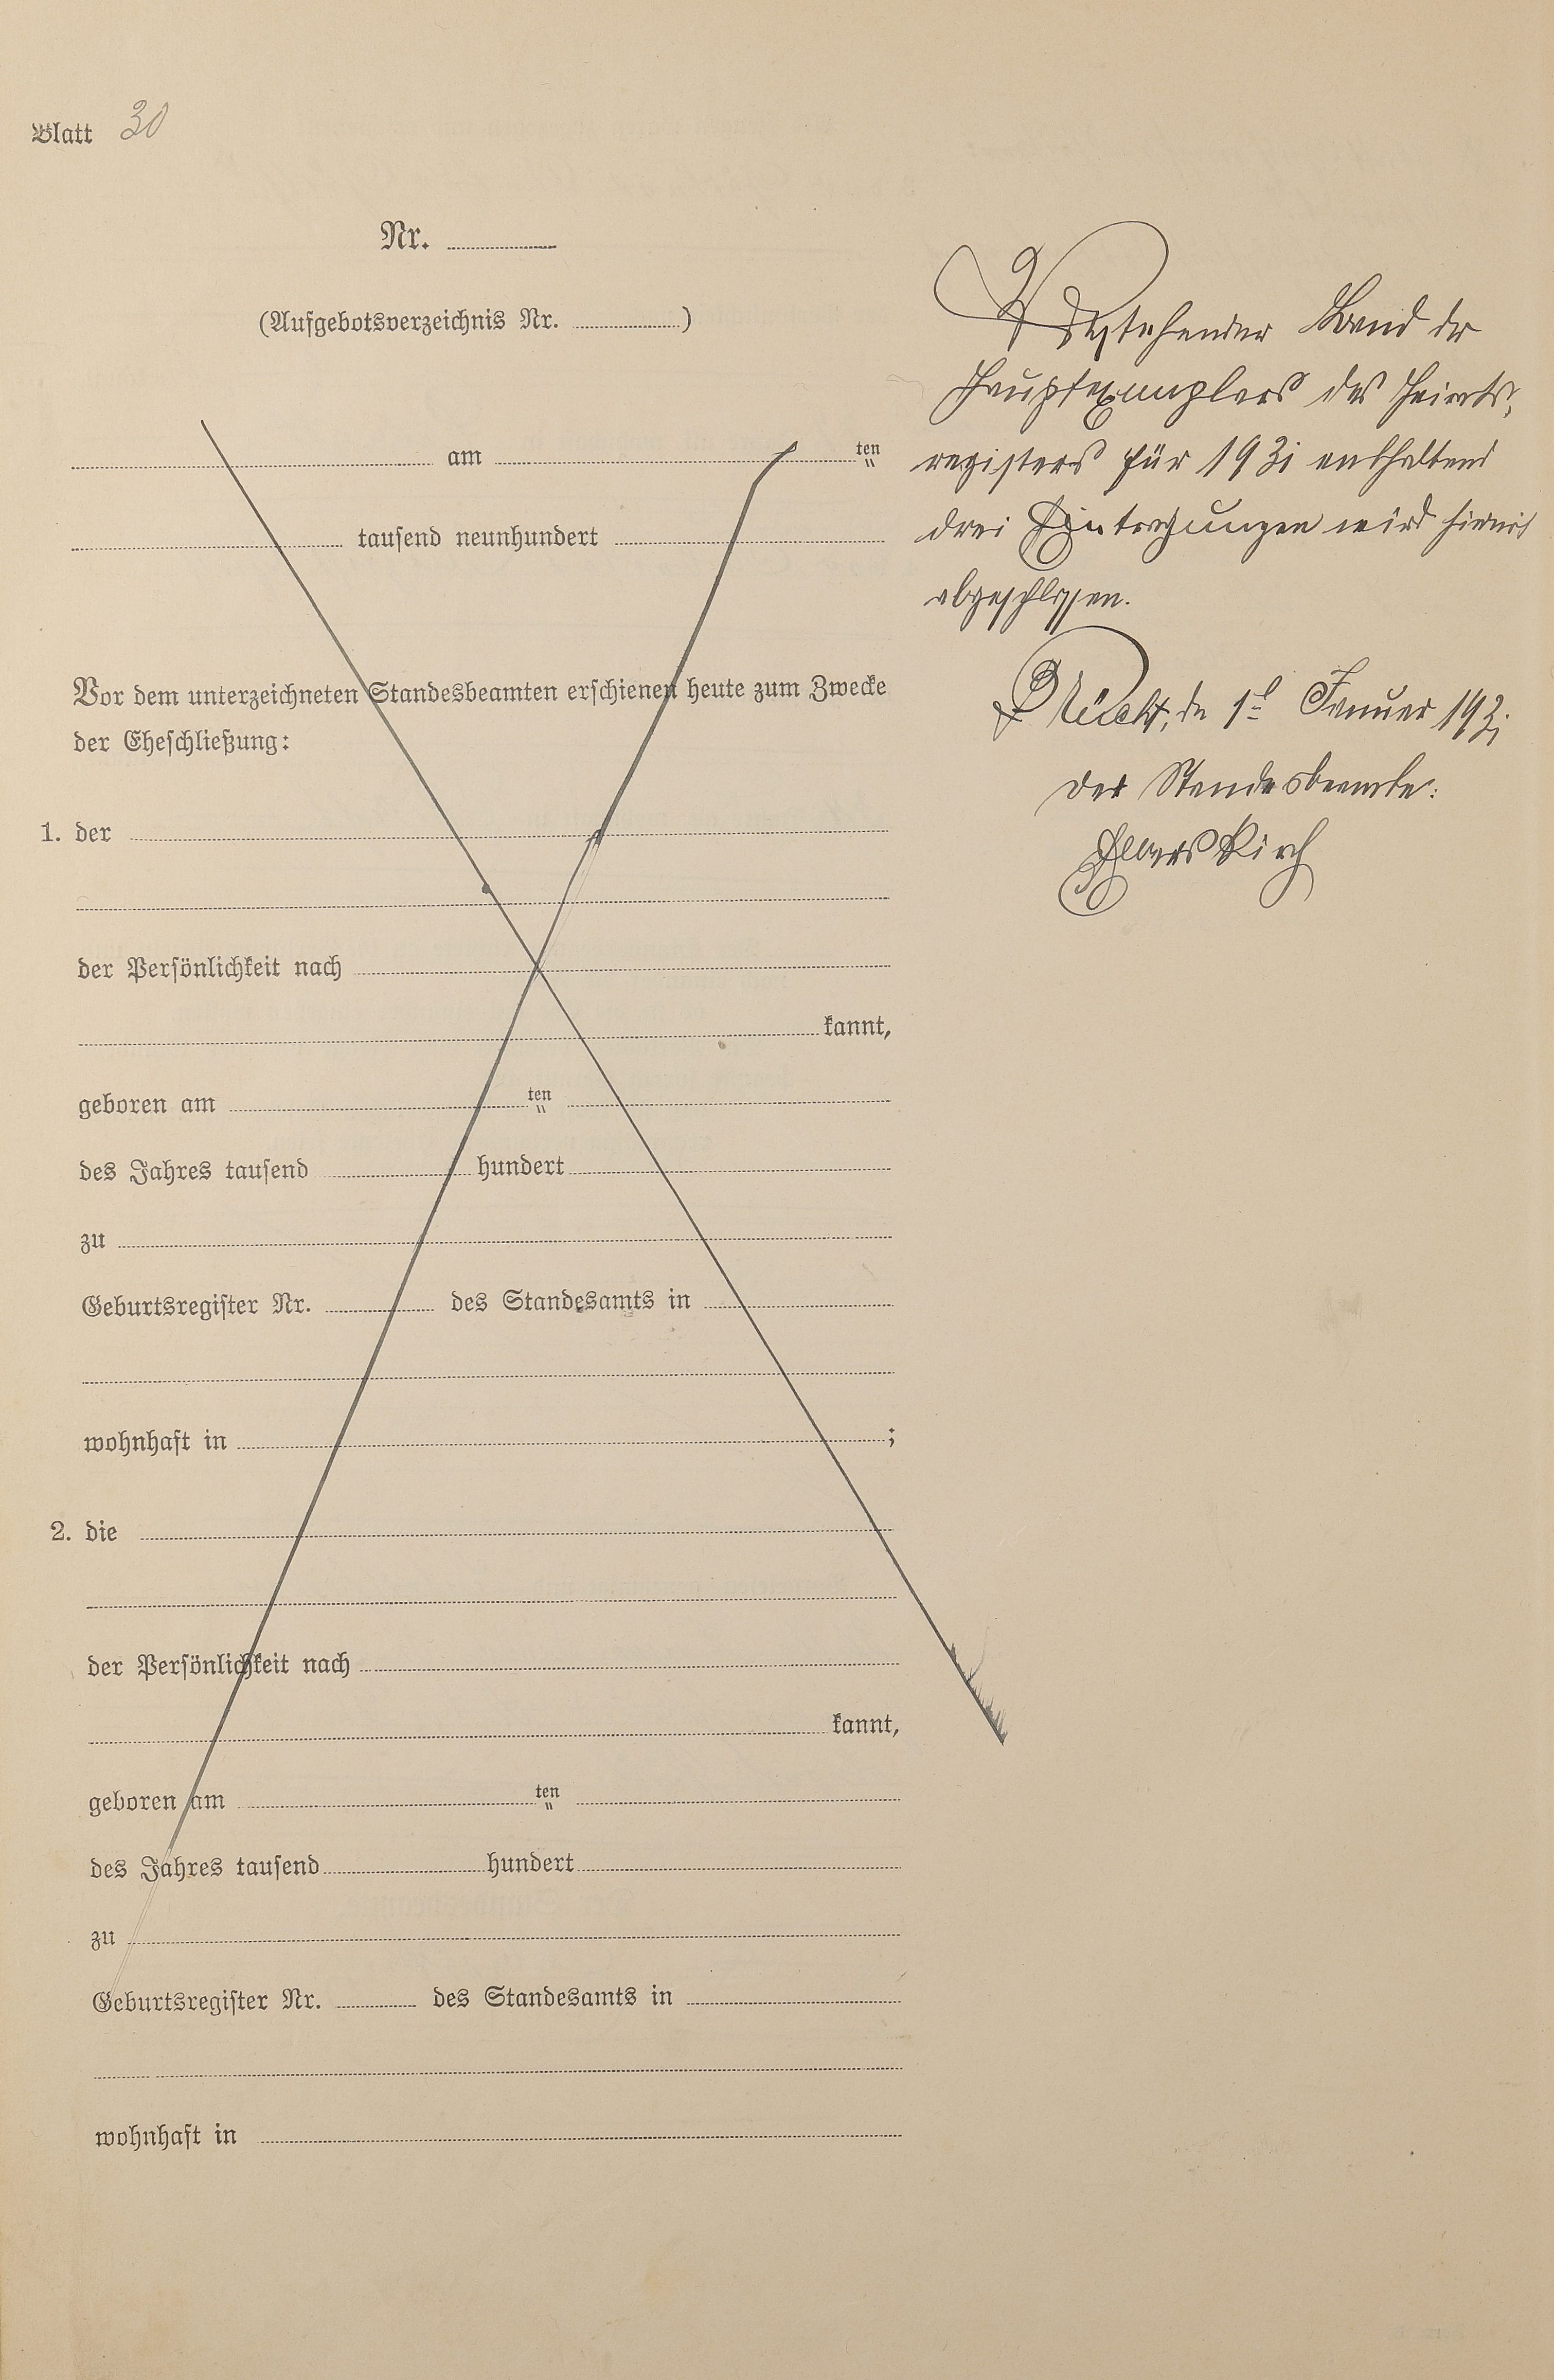 Blatt 30
Nr.
(Aufgebotsverzeichnis Nr. )
am ten
tausend neunhundert
Vor dem unterzeichneten Standesbeamten erschienen heute zum Zwecke
der Eheschließung:
1. der
der Persönlichkeit nach
kannt,
geboren am ten
des Jahres tausend hundert
zu
Geburtsregister Nr. des Standesamts in
wohnhaft in ;
2. die
der Persönlichkeit nach
kannt,
geboren am ten
des Jahres tausend hundert
zu
Geburtsregister Nr. des Standesamts in
wohnhaft in
Band der
Hauptexemplars des Heirats-
registers für 1931 enthaltend
drei Eintragungen wird hiermit
abgeschlossen.
Januar
Der Standesbeamte: